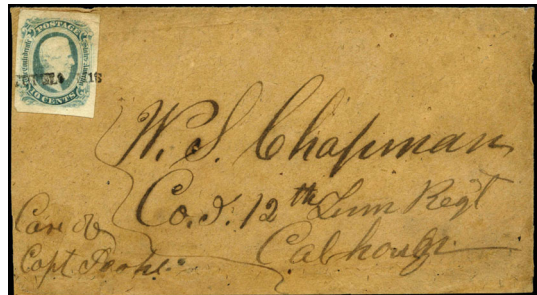 POSTAGE
TEN CENTS
W. S. Chapman
Co. I. 12th Tenn Regt
Calhoun
Care of
Capt